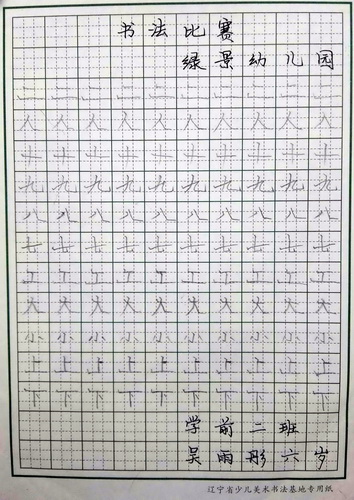 书法比赛
绿景幼儿园
二二二二二二二二二二
人人人人人人人人人人
廿廿廿廿廿廿廿廿廿廿
九九九九九九九九九九
八八八八八八八八八八
七七七七七七七七七七
工工工工工工工工工工
大大大大大大大大大大
小小小小小小小小小小
上上上上上上上上上上
下下下下下下下下下下
学前二班
吴雨彤六岁
辽宁省少儿美术书法基地专用纸